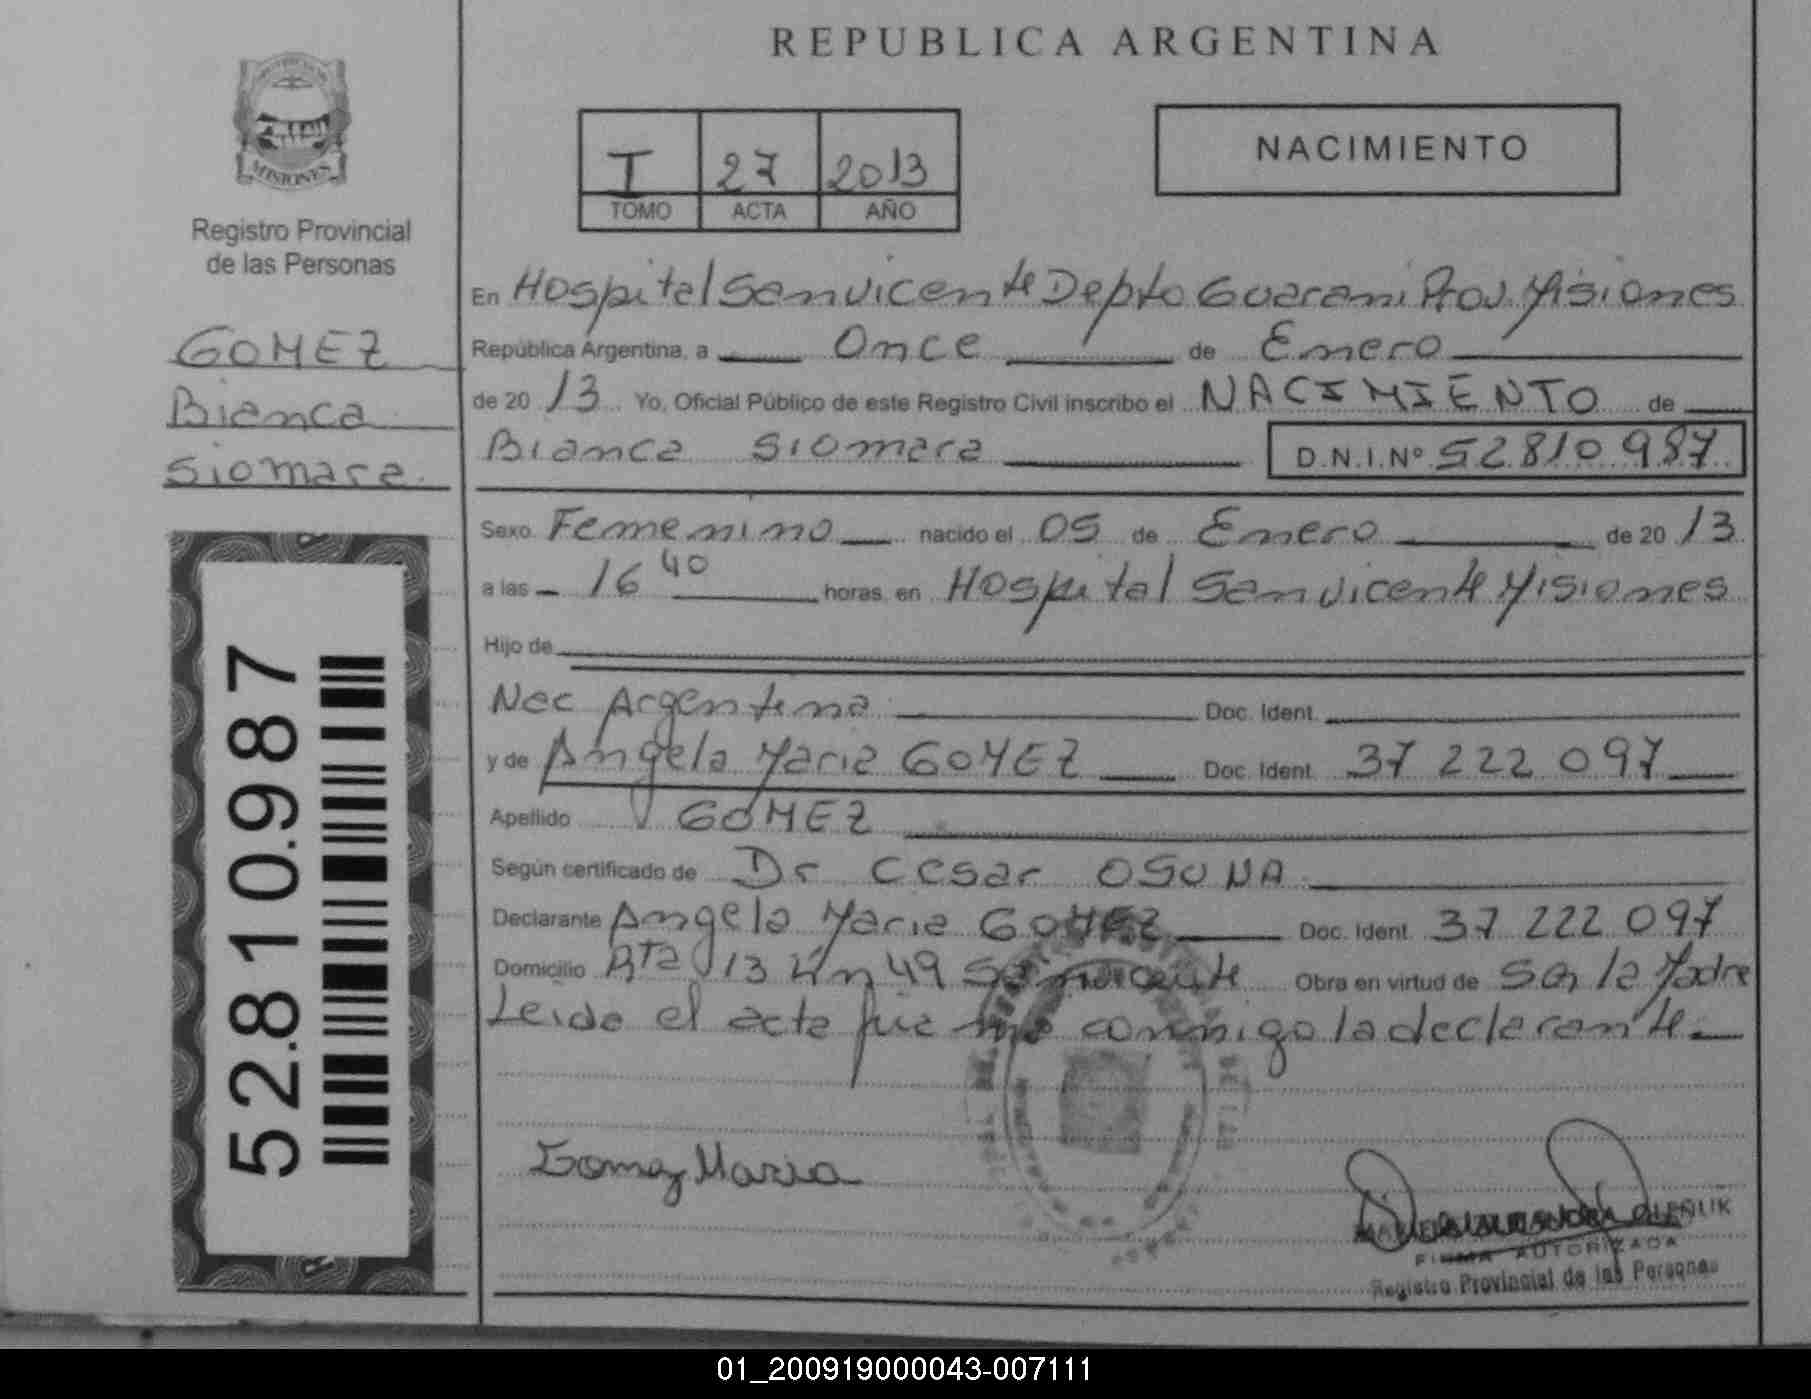 REPUBLICA ARGENTINA
MISIONES
Registro Provincial
de las Personas
GOMEZ
Bianca
Siomara
52.810.987
I 27 2013
TOMO ACTA AÑO
NACIMIENTO
En Hospital San vicente Depto Guarani Prov. Misiones
República Argentina, a Once de Enero
de 20 13 Yo, Oficial Público de este Registro Civil inscribo el NACIMIENTO de
Bianca Siomara D.N.I.Nº 52.810.987
Sexo Femenino nacido el 05 de Enero de 20 13
a las 16 40 horas, en Hospital San vicente Misiones
Hijo de
Nac Argentina Doc. Ident.
y de Angela Maria GOMEZ Doc. Ident. 37 222 097
Apellido GOMEZ
Según certificado de Dr Cesar OSUNA
Declarante Angela Maria GOMEZ Doc. Ident. 37 222 097
Domicilio Rta 13 Km 49 San vicente Obra en virtud de Ser la Madre
Leida el acta conmigo la declarante
Gomez Maria
FIRMA AUTORIZADA
Registro Provincial de las Personas
01_200919000043-007111